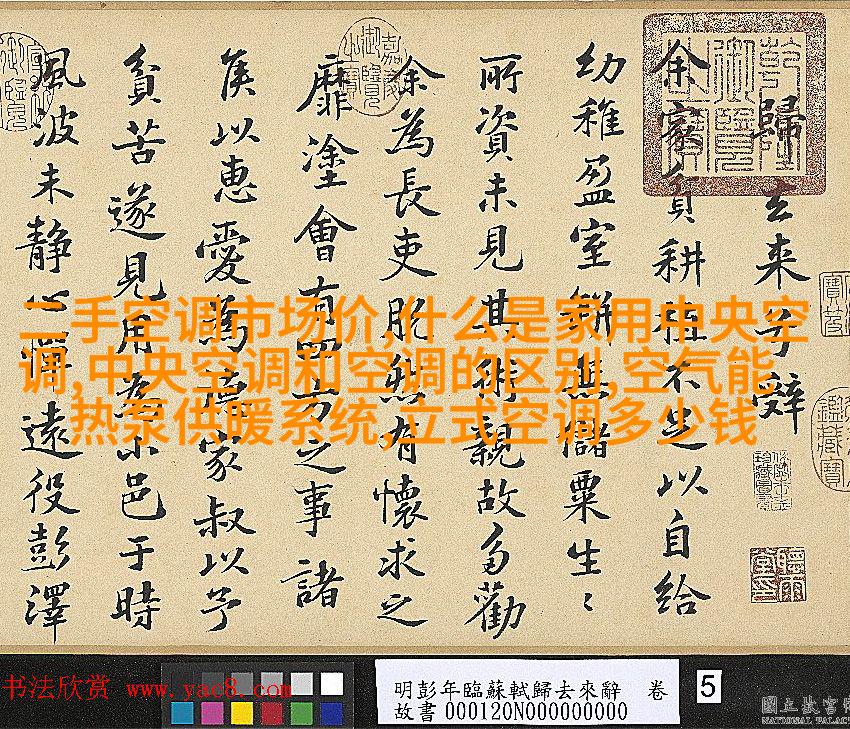 歸去来子辤
余家貧耕植不足以自給
幼稚盈室缾無儲粟生〻
所資未見其術親故多勸
余為長吏脫然有懷求之
靡塗會有四方之事諸
侯以惠愛為德家叔以予
貧苦遂見用為小邑于時
風波未静心憚遠役彭澤
二手空调市场价,什么是家用中央空
调,中央空调和空调的区别,空气能
热泵供暖系统,立式空调多少钱
书法欣赏 www.yac8.com
明彭年臨蘇軾歸去來辭 卷 5
故書000120N000000000
國立故宮博
NATIONAL PALACE